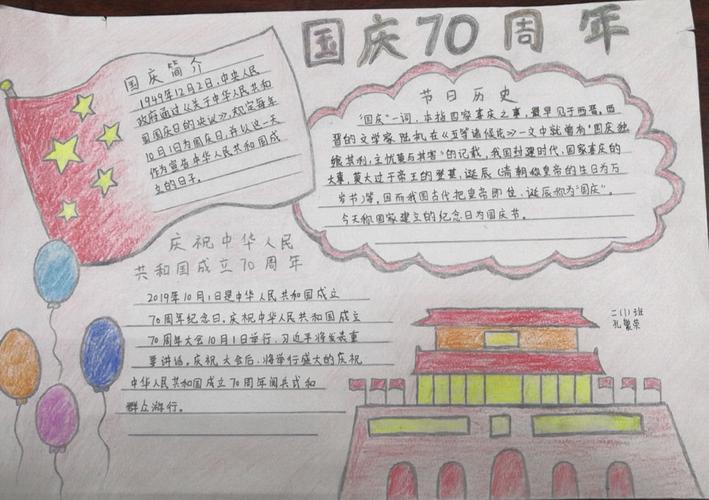 国庆70周年
国庆简介
1949年12月2日,中央人民
政府通过《关于中华人民共和
国国庆日的决议》,规定每年
10月1日为国庆日,并以这一天
作为宣告中华人民共和国成
立的日子。
节日历史
"国庆"一词,本指国家喜庆之事,最早见于西晋。西
晋的文学家陆机在《五等诸侯论》一文中就曾有"国庆独
飨其利,主忧莫与其害"的记载,我国封建时代、国家喜庆的
大事,莫大过于帝王的登基、诞辰(清朝称皇帝的生日为万
岁节)等。因而我国古代把皇帝即位、诞辰称为"国庆"。
今天称国家建立的纪念日为国庆节。
庆祝中华人民
共和国成立70周年
2019年10月1日是中华人民共和国成立
70周年纪念日。庆祝中华人民共和国成立
70周年大会10月1日举行,习近平将发表重
要讲话。庆祝大会后,将举行盛大的庆祝
中华人民共和国成立70周年阅兵式和
群众游行。
二(1)班
孔繁荣